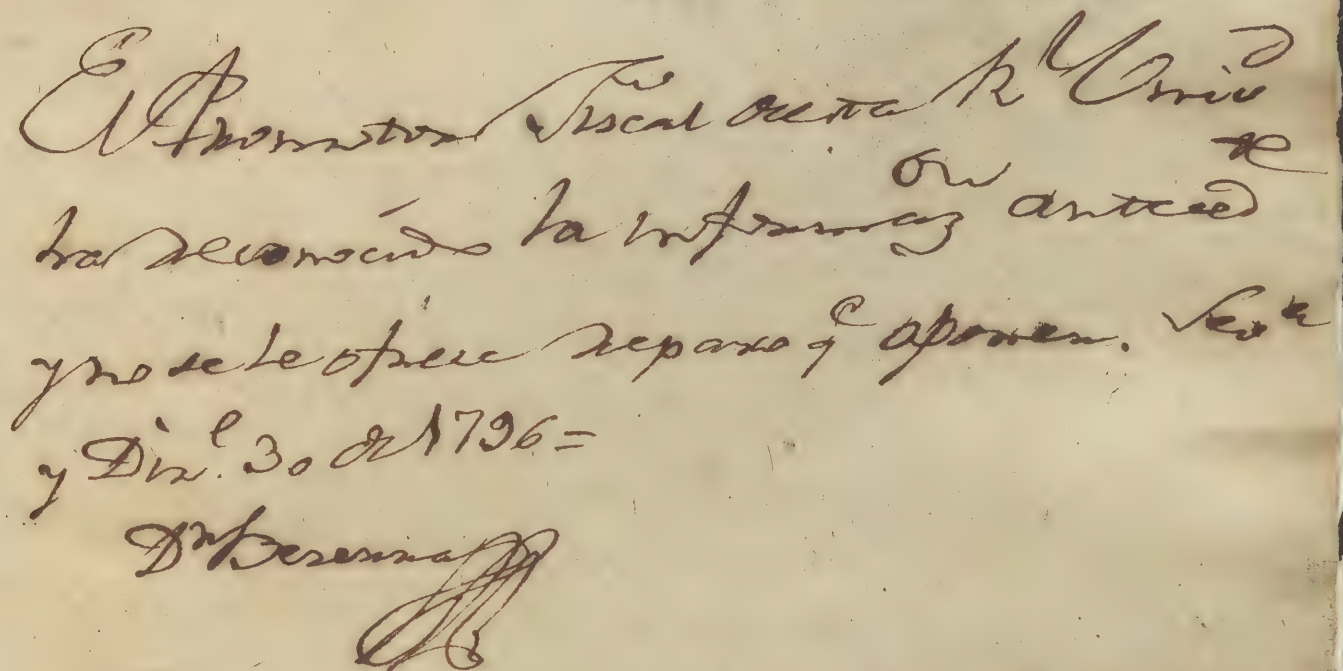 El Promotor Fiscal de esta Rl Univd
ha reconocido la informazon antecedte
y no se le ofrece reparo qe oponer. Seva
y Dizre 30 de 1796=
Dr Berenna